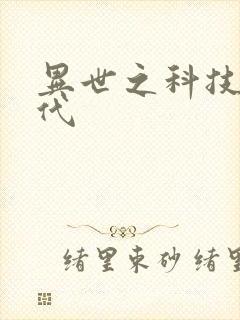 異世之科技
代
绪里束砂绪里